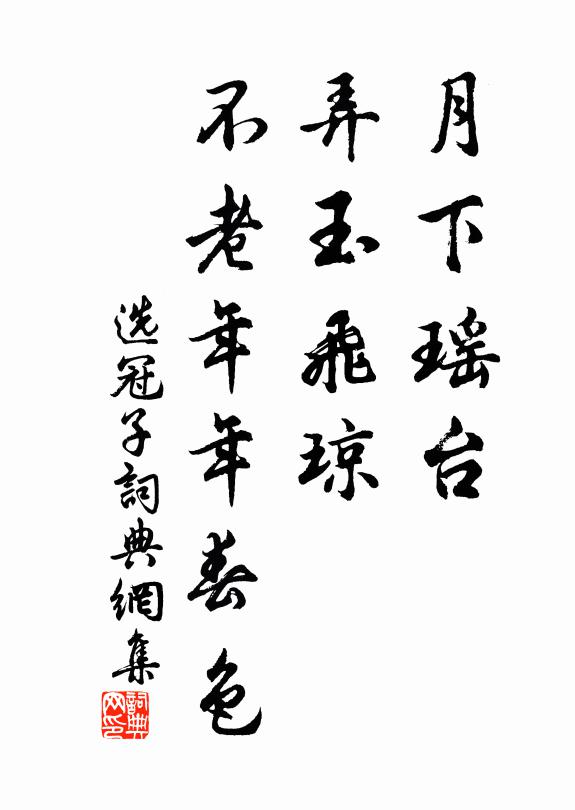 月下瑶台
弄玉飛琼
不老年年春色
选冠子詞典網集
詞典网印